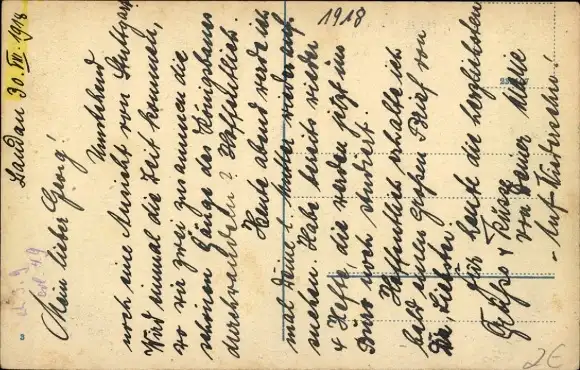 Landau 30. VII. 1918
1918
Mein lieber Georg!
Umstehend
noch eine Ansicht von Stuttgart
Wird einmal die Zeit kommen,
wo wir zwei zusammen die
schönen Gänge des Königsbaues
durchwandeln? Hoffentlich!
Heute abend werde ich
mal Deine l. Mutter wieder auf-
suchen. Habe bereits wieder
4 Hefte die werden jetzt ins
Büro noch studiert.
Hoffentlich erhalte ich
bald einen großen Brief von
Dir, Liebster!
Für heute die herzlichsten
Grüße & Küsse
von Deiner
Auf Wiedersehn!
2€